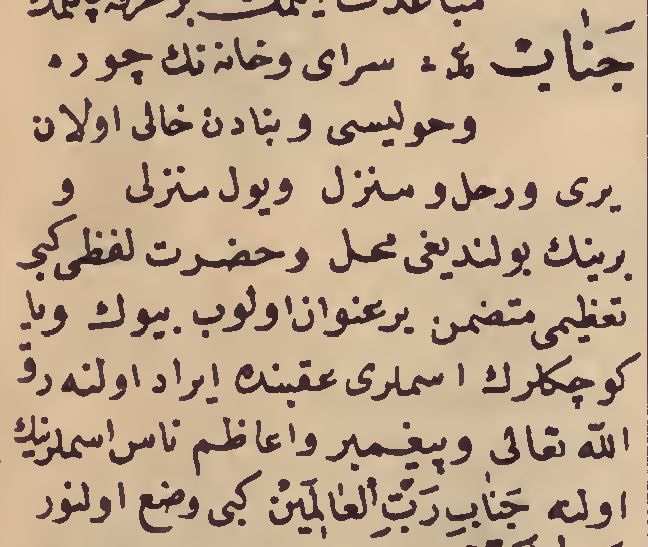 جَنَاب ع. سرای وخانه نك چوره
وحولیسی وبنادن خالی اولان
یری ورحل و منزل ویول منزلی و
برینك بولندیغی محل وحضرت لفظی كبی
تعظیمی متضمن برعنوان اولوب بیوك ویا
كوچكلرك اسملری عقبنده ایراد اولنه رق
الله تعالی وپیغمبر واعاظم ناس اسملرینك
اولنه جَنَابِ رَبِّ الْعَالَمِيْنْ كبی وضع اولنور